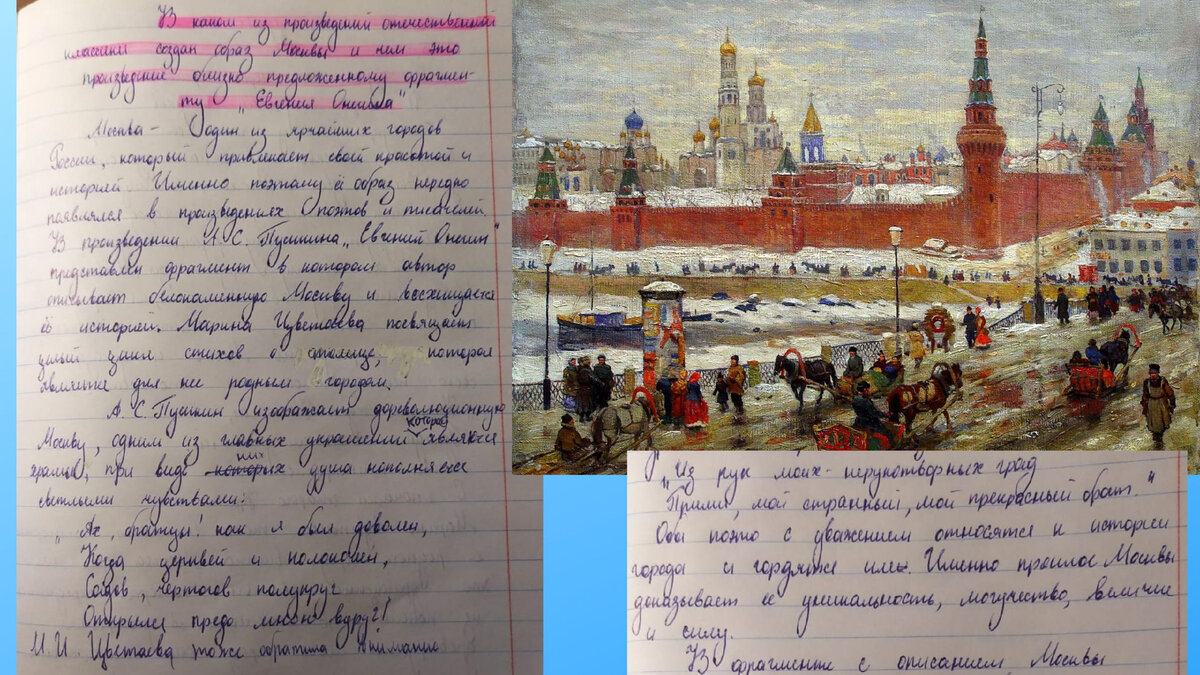 В каком из произведений отечественной
классики создан образ Москвы и чем это
произведение близко предложенному фрагмен-
ту "Евгения Онегина"
Москва - один из ярчайших городов
России, который привлекает своей красотой и
историей. Именно поэтому её образ нередко
появлялся в произведениях поэтов и писателей.
В произведении А.С. Пушкина "Евгений Онегин"
представлен фрагмент в котором автор
описывает белокаменную Москву и восхищается
её историей. Марина Цветаева посвящает
целый цикл стихов о столице, которая
является для нее родным городом.
А.С. Пушкин изображает дореволюционную
Москву, одним из главных украшений которой являются
храмы, при виде них душа наполняется
светлыми чувствами:
"Ах, братцы! как я был доволен,
Когда церквей и колоколен,
Садов, чертогов полукруг
Открылся предо мною вдруг!
М.И. Цветаева тоже обратила внимание
"Из рук моих - нерукотворный град
Прими, мой странный, мой прекрасный брат."
Оба поэта с уважением относятся к истории
города и гордятся ею. Именно прошлое Москвы
доказывает её уникальность, могущество, величие
и силу.
В фрагменте с описанием Москвы